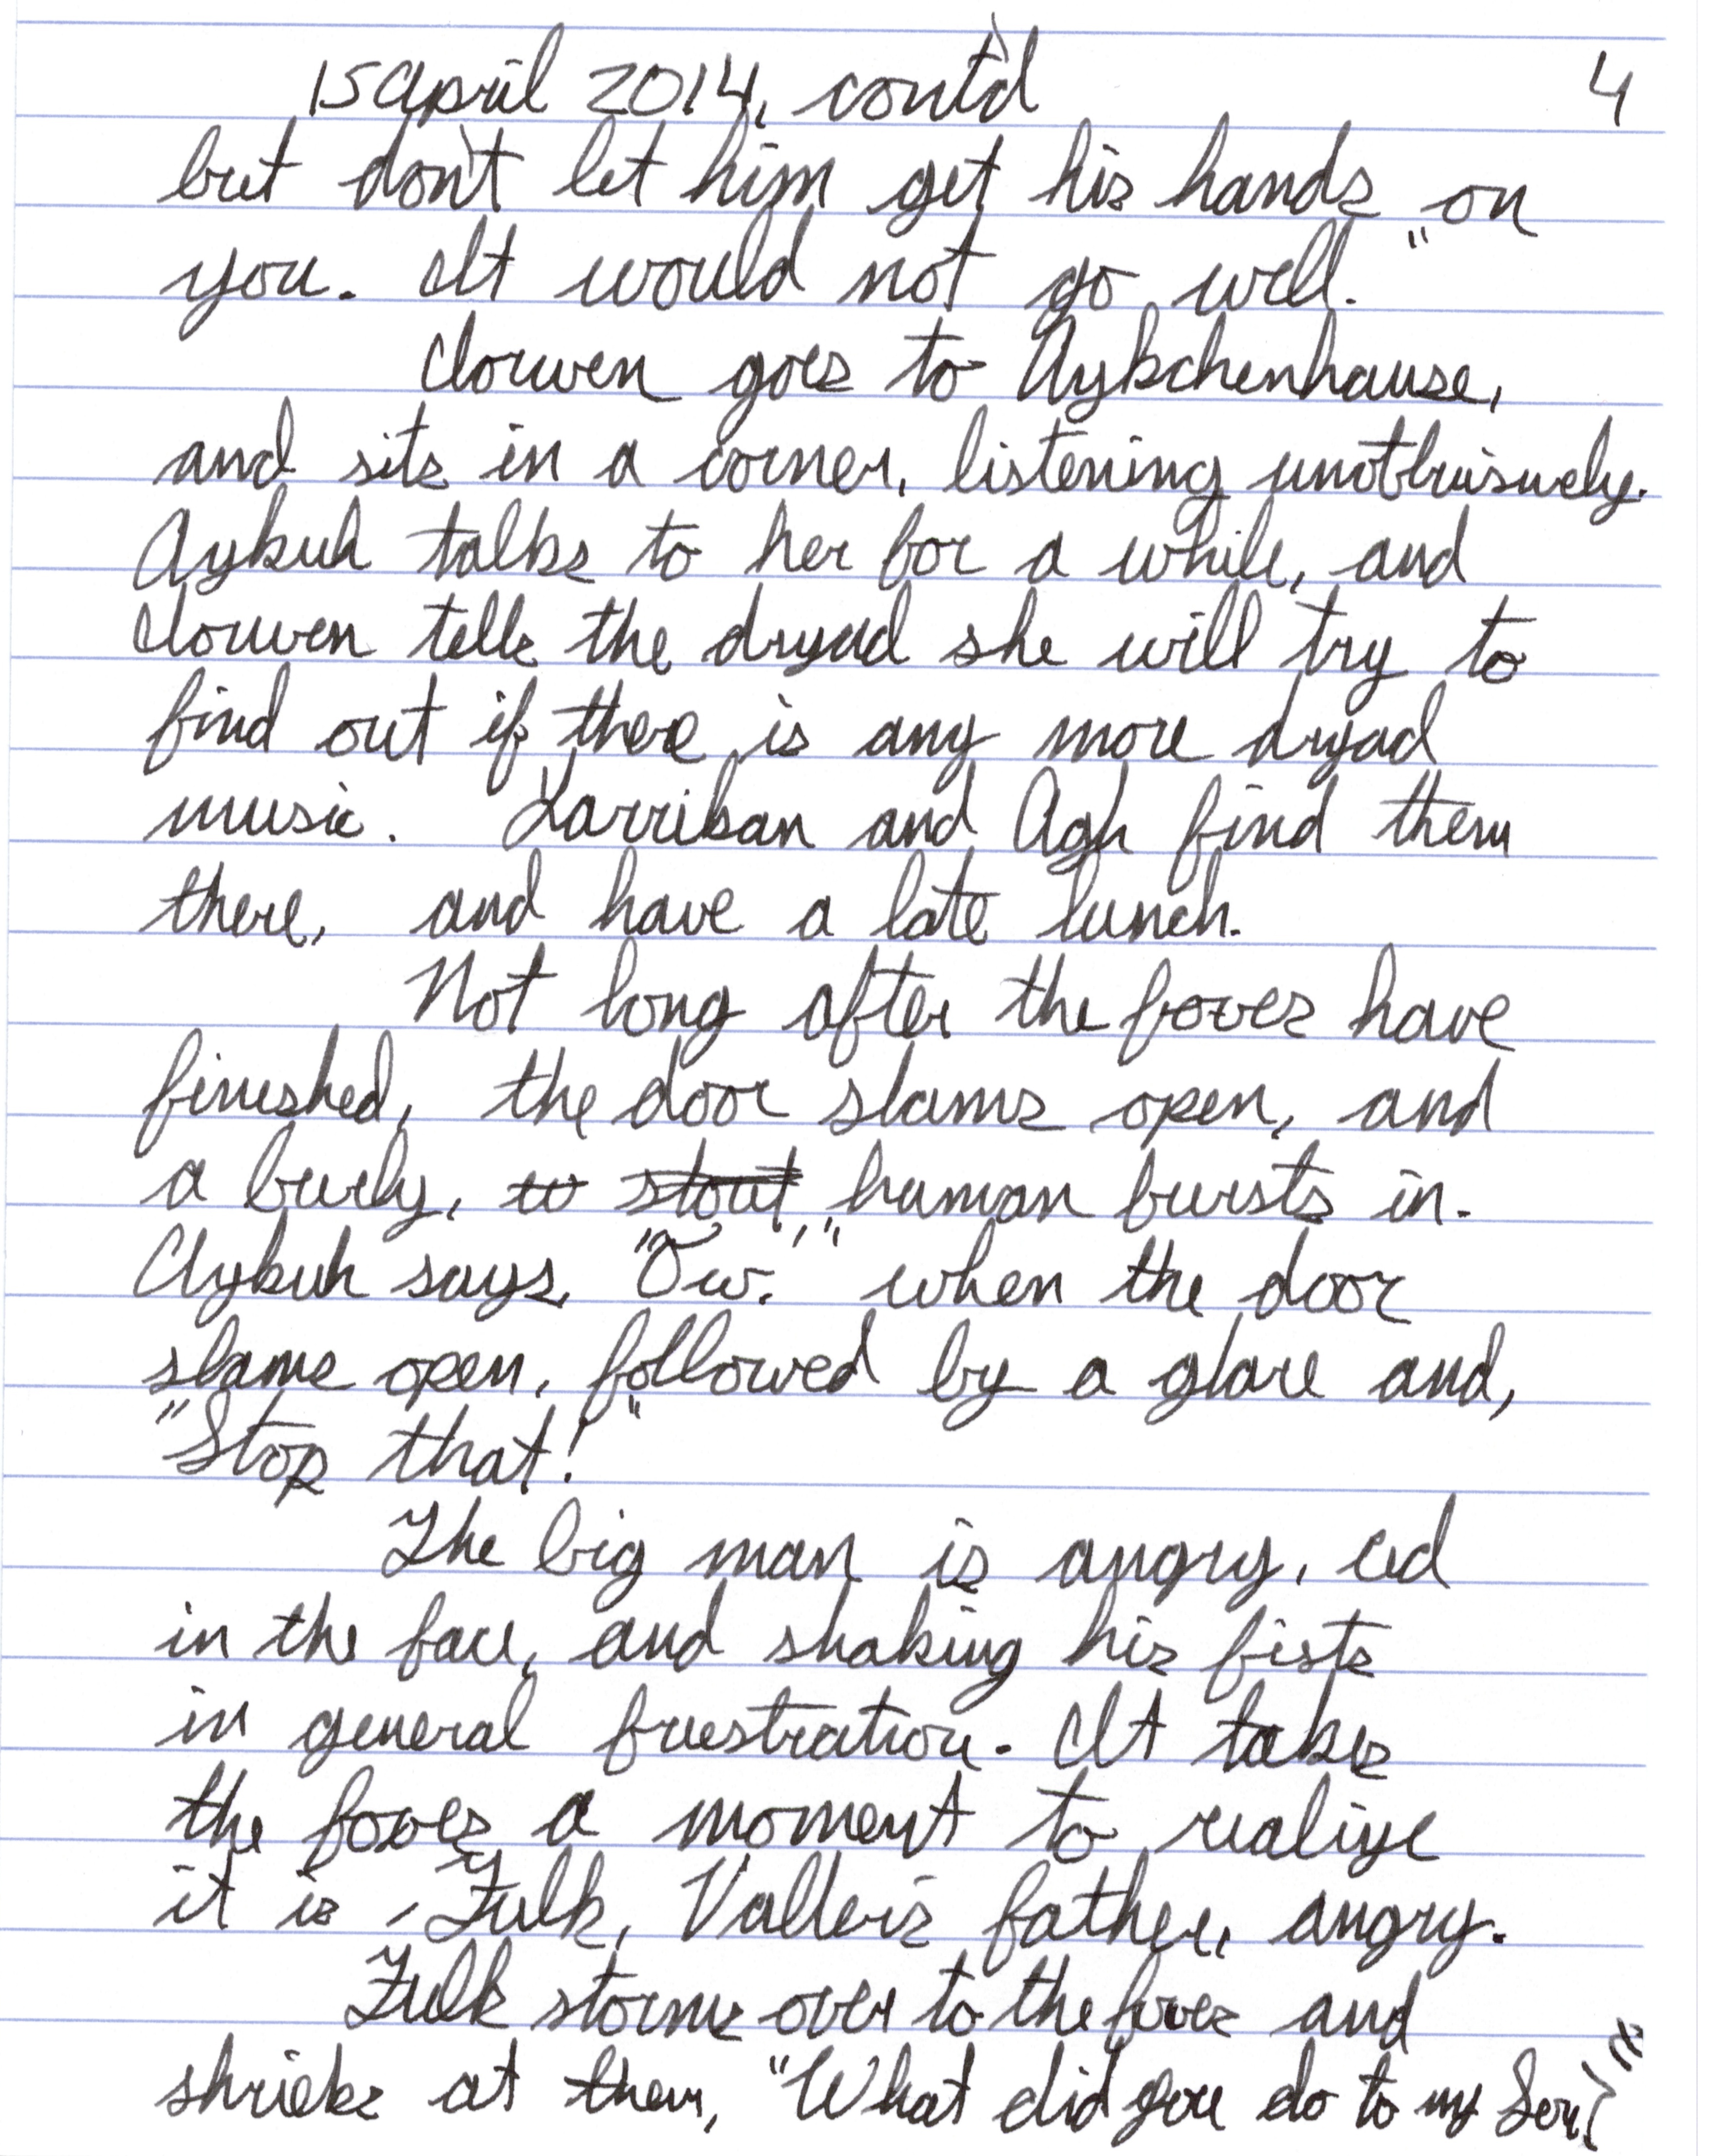 15 April 2014, cont'd 4
but don't let him get his hands on
you. It would not go well."
Clorwen goes to Aykchenhause,
and sits in a corner, listening unobtrusively.
Aykuh talks to her for a while, and
Clorwen tells the dryad she will try to
find out if there is any more dryad
music. Larriban and Agh find them
there, and have a late lunch.
Not long after the foxes have
finished, the door slams open, and
a burly, stout, human bursts in.
Aykuh says, "Ow." when the door
slams open, followed by a glare and,
"Stop that!"
The big man is angry, red
in the face, and shaking his fists
in general frustration. It takes
the foxes a moment to realize
it is Fulk, father, angry.
Fulk storms over to the foxes and
shrieks at them, "What did you do to my Son?"